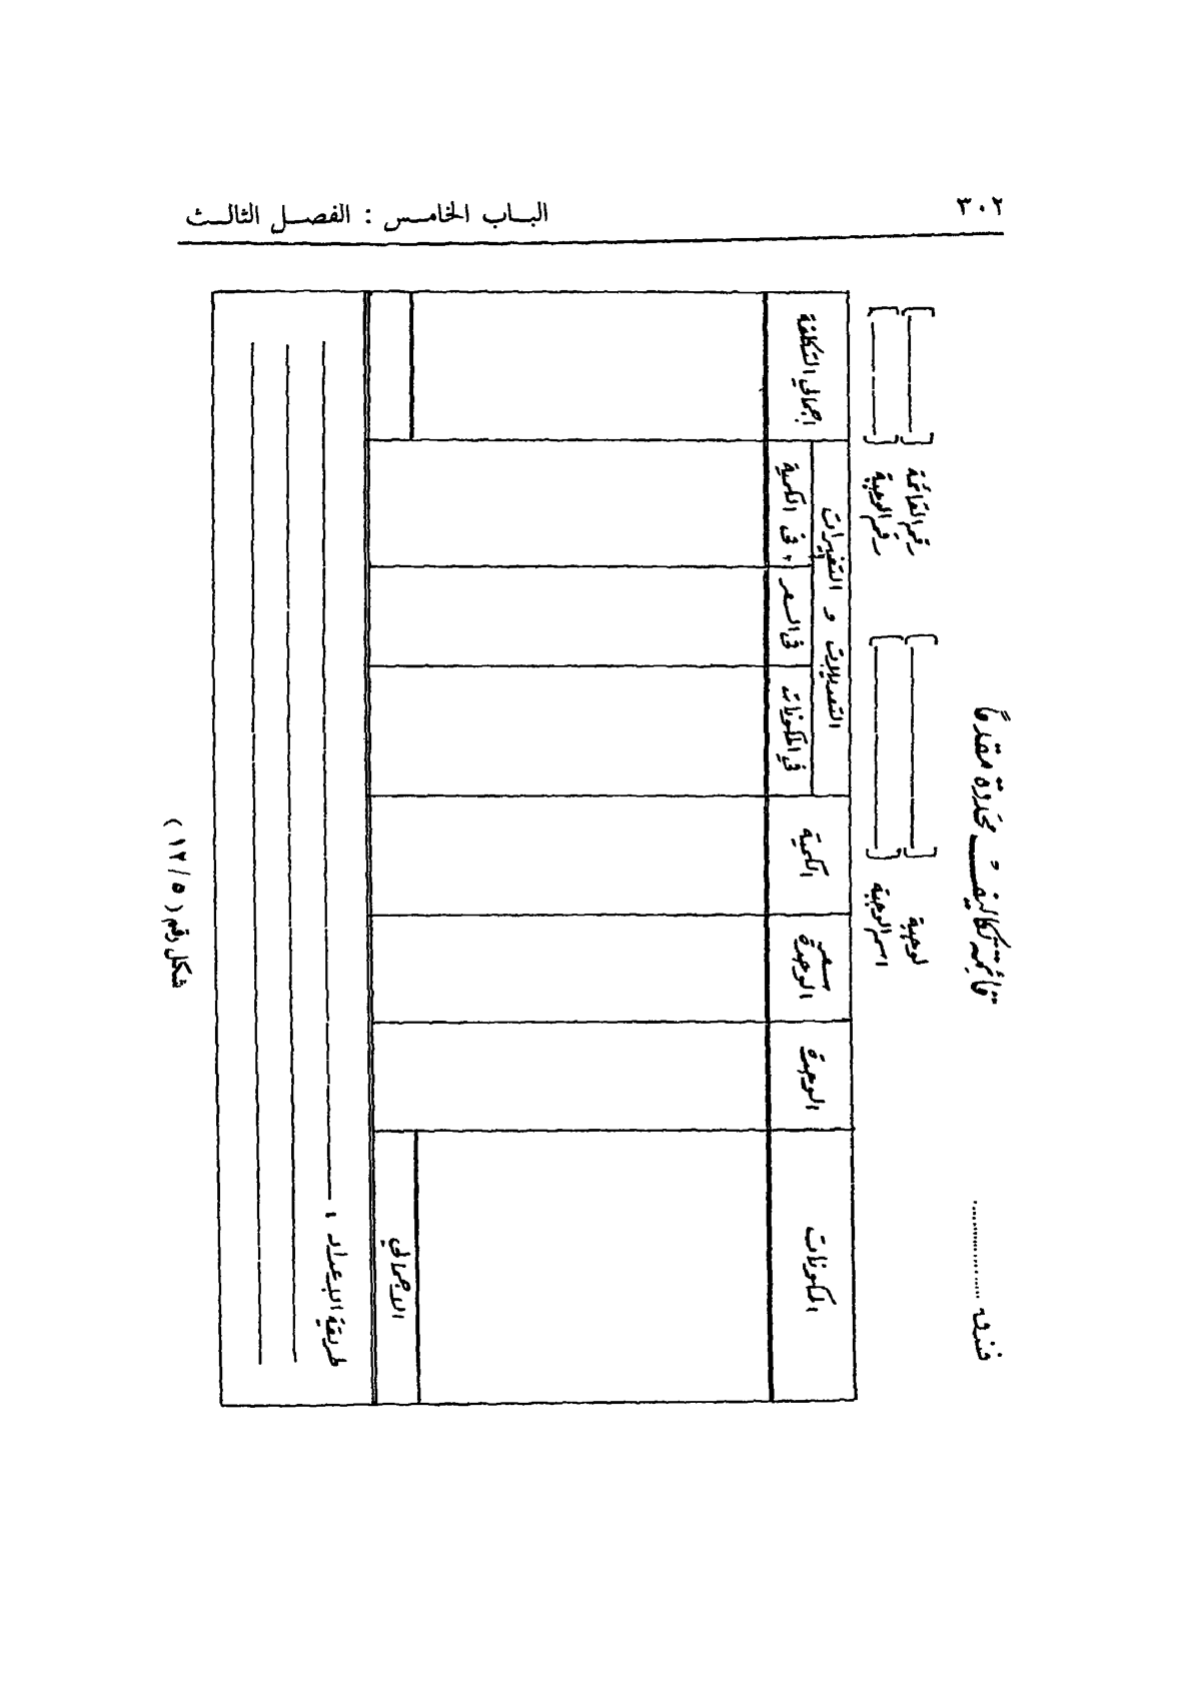 ٣٠٢
البـاب الخامـس : الفصـل الثالـث
فندق ..............
قائمة تكاليف محددة مقدماً
لوجبة [ ] رقم القائمة [ ]
اسم الوجبة [ ] رقم الوجبة [ ]
المكونات
الوحدة
سعر الوحدة
الكمية
التعديلات و التغيرات
في المكونات
في السعر
في الكمية
اجمالي التكلفة
الاجمالي
طريقة الإعداد :
شكل رقم ( ١٢/٥ )